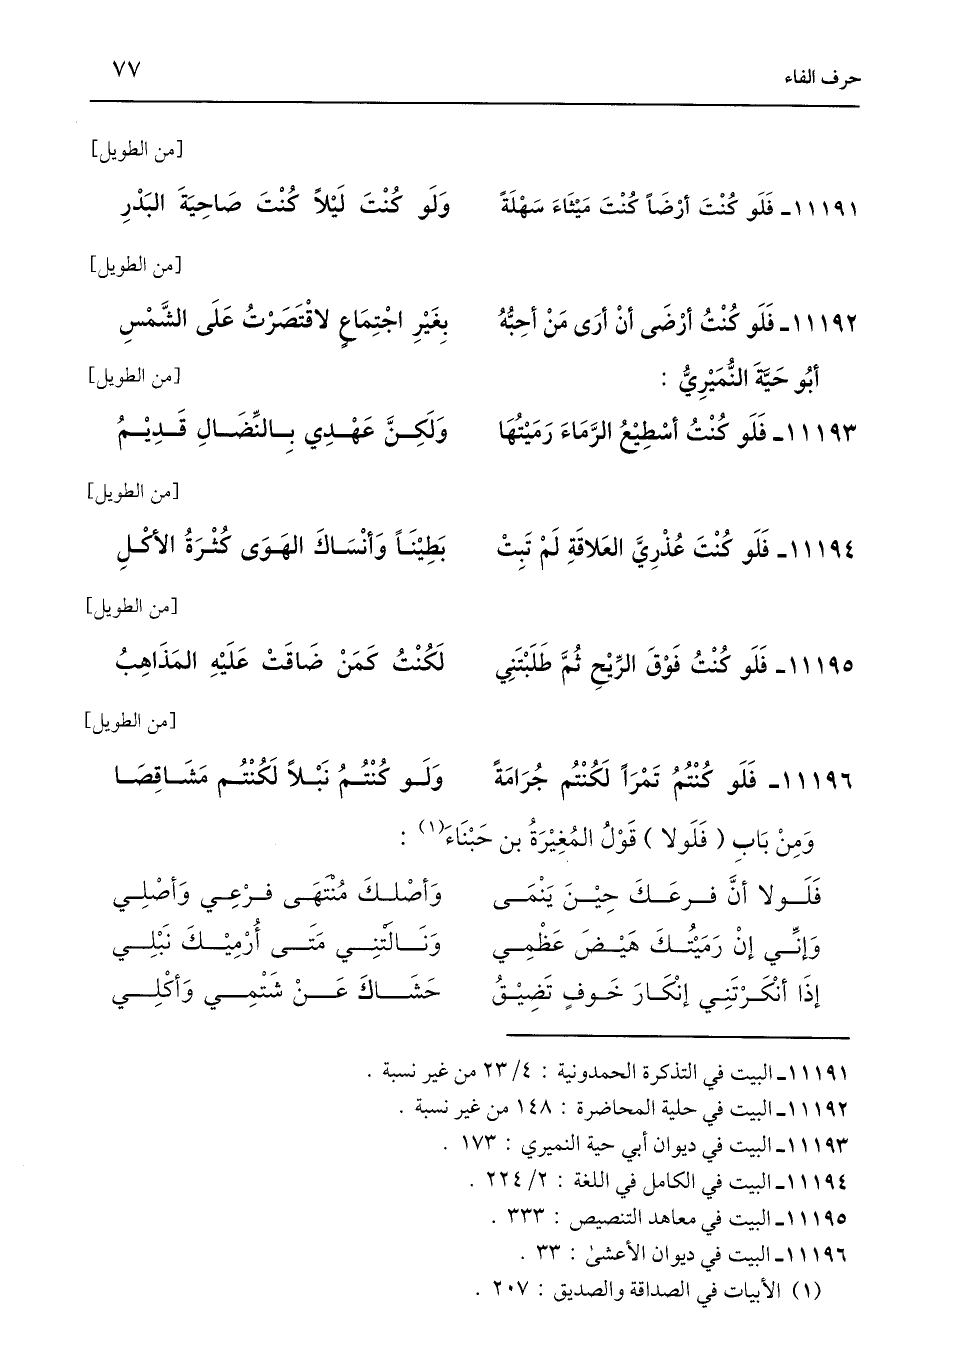 حرف الفاء ٧٧
[من الطويل]
١١١٩١ـ فَلَو كُنْتَ أرْضَاً كُنْتَ مَيْثَاءَ سَهْلَةً وَلَو كُنْتَ لَيْلاً كُنْتَ صَاحِيَةَ البَدْرِ
[من الطويل]
١١١٩٢ـ فَلَو كُنْتُ أرْضَى أنْ أرَى مَنْ أحِبُّهُ بِغَيْرِ اجْتِمَاعٍ لاقْتَصَرْتُ عَلَى الشَّمْسِ
أبُو حَيَّةَ النُّمَيْرِيُّ : [من الطويل]
١١١٩٣ـ فَلَو كُنْتُ أسْطِيْعُ الرَّمَاءَ رَمَيْتُهَا وَلَكِنَّ عَهْدِي بِالنِّضَالِ قَدِيْمُ
[من الطويل]
١١١٩٤ـ فَلَو كُنْتَ عُذْرِيَّ العَلاقَةِ لَمْ تَبِتْ بَطِيْنَاً وَأنْسَاكَ الهَوَى كُثْرَةُ الأكْلِ
[من الطويل]
١١١٩٥ـ فَلَو كُنْتُ فَوْقَ الرِّيْحِ ثُمَّ طَلَبْتَنِي لَكُنْتُ كَمَنْ ضَاقَتْ عَلَيْهِ المَذَاهِبُ
[من الطويل]
١١١٩٦ـ فَلَو كُنْتُمُ تَمْرَاً لَكُنْتُم جُرَامَةً وَلَو كُنْتُمُ نَبْلاً لَكُنْتُم مَشَاقِصَا
وَمِنْ بَابِ ( فَلَولا ) قَوْلُ المُغِيْرَةُ بن حَبْنَاءَ(١) :
فَلَولا أنَّ فرعَكَ حِيْنَ يَنْمَى وَأصْلكَ مُنْتَهَى فرْعِي وَأصْلِي
وَإنِّي إنْ رَمَيْتُكَ هَيْضَ عَظْمِي وَنَالَتْنِي مَتَى أُرْمِيْكَ نَبْلِي
إذَا أنْكَرْتَنِي إنْكَارَ خَوفٍ تَضِيْقُ حَشَاكَ عَنْ شَتْمِي وَأكْلِي
١١١٩١ـ البيت في التذكرة الحمدونية : ٤/ ٢٣ من غير نسبة .
١١١٩٢ـ البيت في حلية المحاضرة : ١٤٨ من غير نسبة .
١١١٩٣ـ البيت في ديوان أبي حية النميري : ١٧٣ .
١١١٩٤ـ البيت في الكامل في اللغة : ٢/ ٢٢٤ .
١١١٩٥ـ البيت في معاهد التنصيص : ٣٣٣ .
١١١٩٦ـ البيت في ديوان الأعشىٰ : ٣٣ .
(١) الأبيات في الصداقة والصديق : ٢٠٧ .